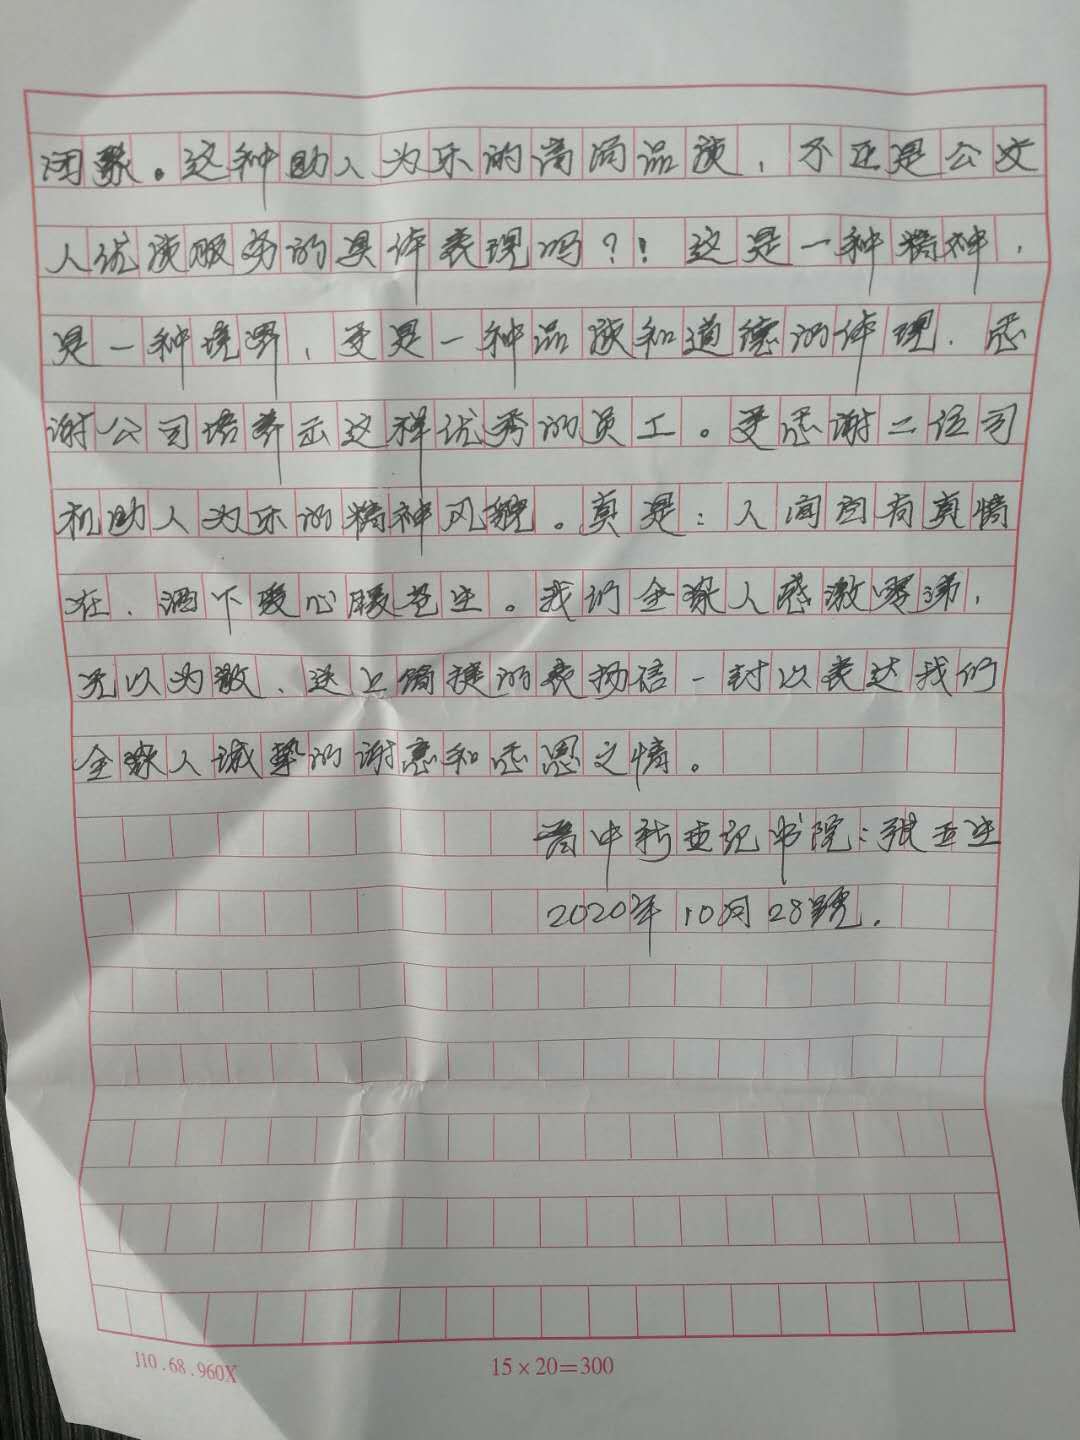 团聚。这种助人为乐的高尚品质，不正是公交
人优质服务的具体表现吗？！这是一种精神，
是一种境界，更是一种品质和道德的体现．感
谢公司培养出这样优秀的员工。更感谢二位司
机助人为乐的精神风貌。真是：人间自有真情
在．洒下爱心暖苍生。我们全家人感激零涕，
无以为敬、送上简捷的表扬信一封以表达我们
全家人诚挚的谢意和感恩之情。
晋中新世记书院：张玉生
2020年10月28號．
J10.68.960X
15×20=300